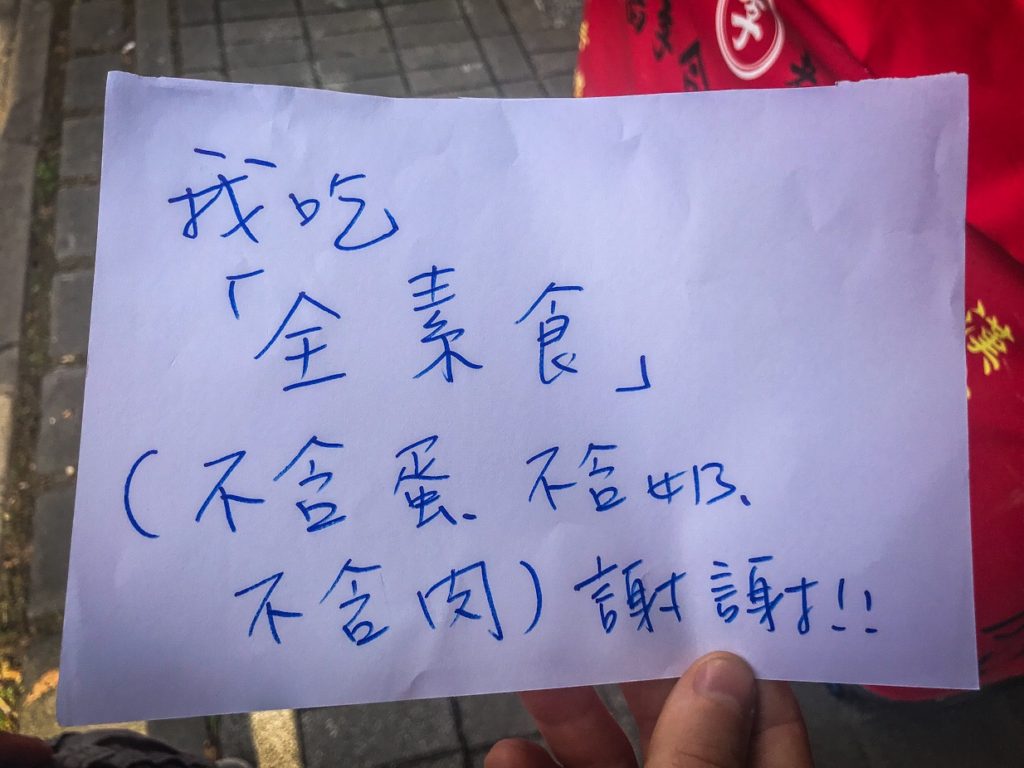 我吃
「全素食」
(不含蛋、不含奶、
不含肉)謝謝!!